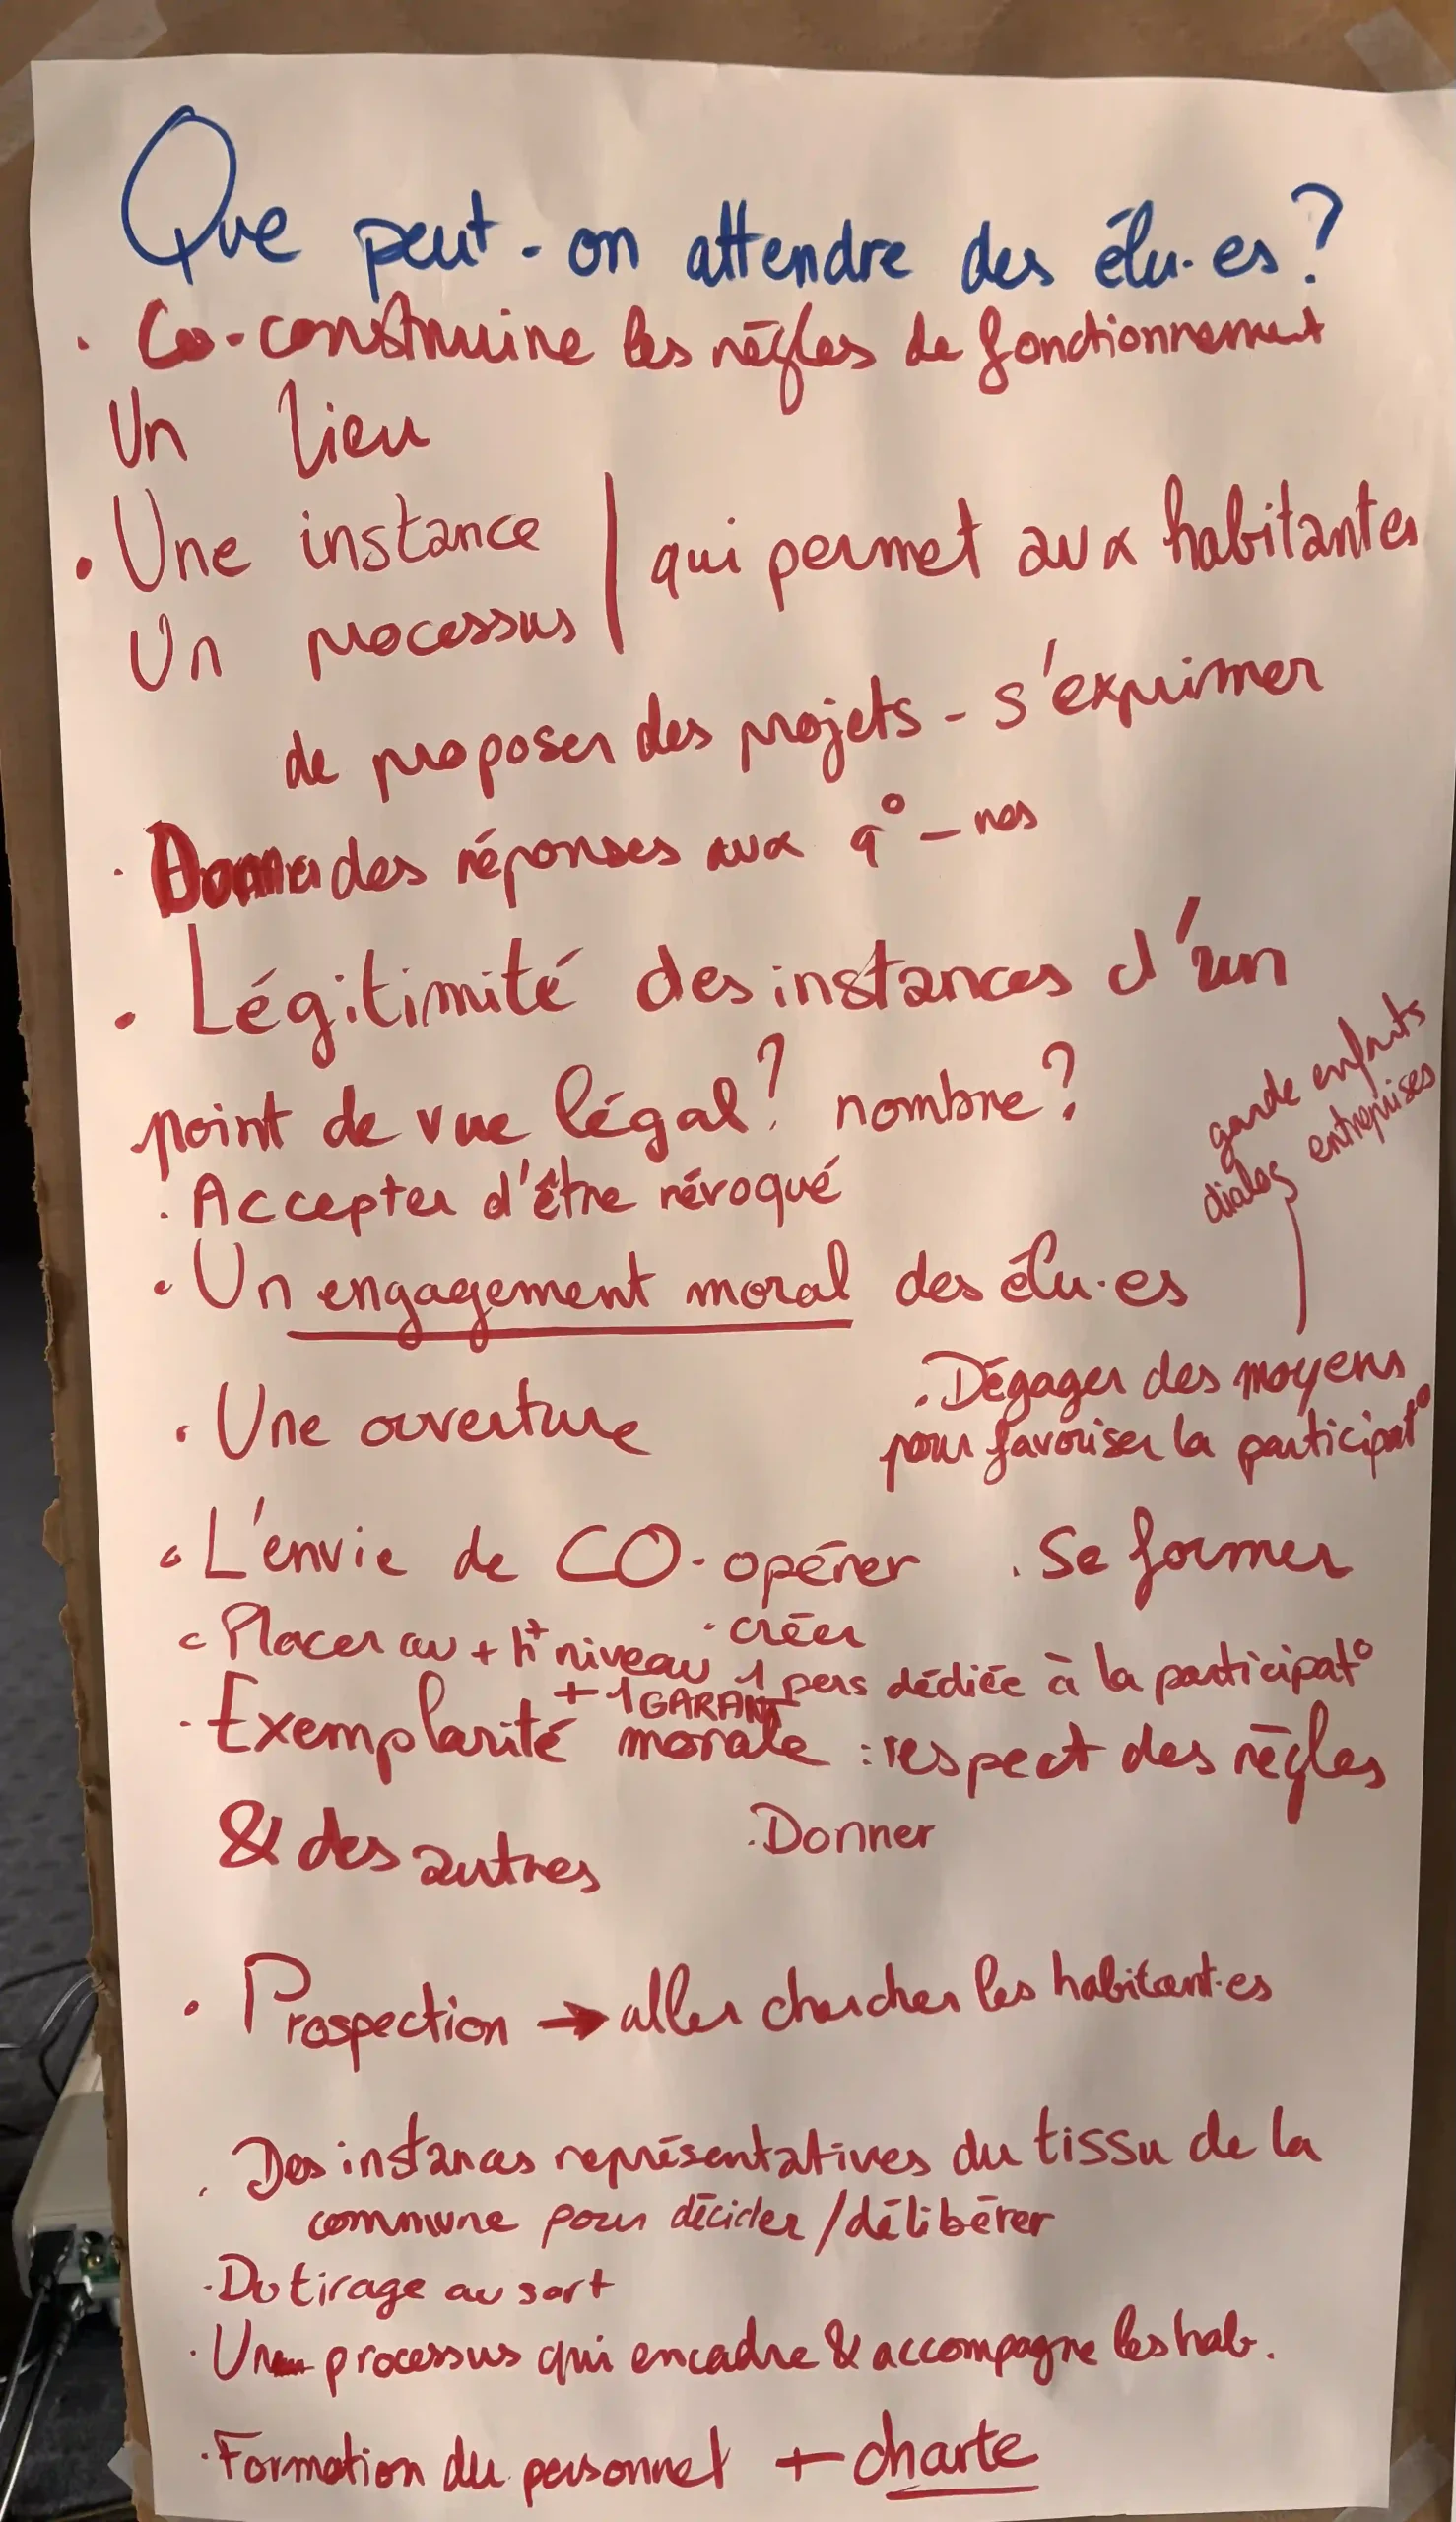 Que peut-on attendre des élu·es ?
· Co-construire les règles de fonctionnement
Un lieu
· Une instance | qui permet aux habitantes
Un processus
de proposer des projets - s'exprimer
· Donner des réponses aux q° - nos
· Légitimité des instances d'un
point de vue légal ? nombre ?
garde enfants
dialog entreprises
· Accepter d'être révoqué
· Un engagement moral des élu·es
· Dégager des moyens
pour favoriser la participat°
· Une ouverture
· L'envie de CO-opérer · Se former
· Placer au + ht niveau · créer
1 pers dédiée à la participat°
+ 1 GARANT
· Exemplarité morale : respect des règles
& des autres · Donner
· Prospection → aller chercher les habitant·es
· Des instances représentatives du tissu de la
commune pour décider / délibérer
· Du tirage au sort
· Un processus qui encadre & accompagne les hab.
· Formation du personnel + charte